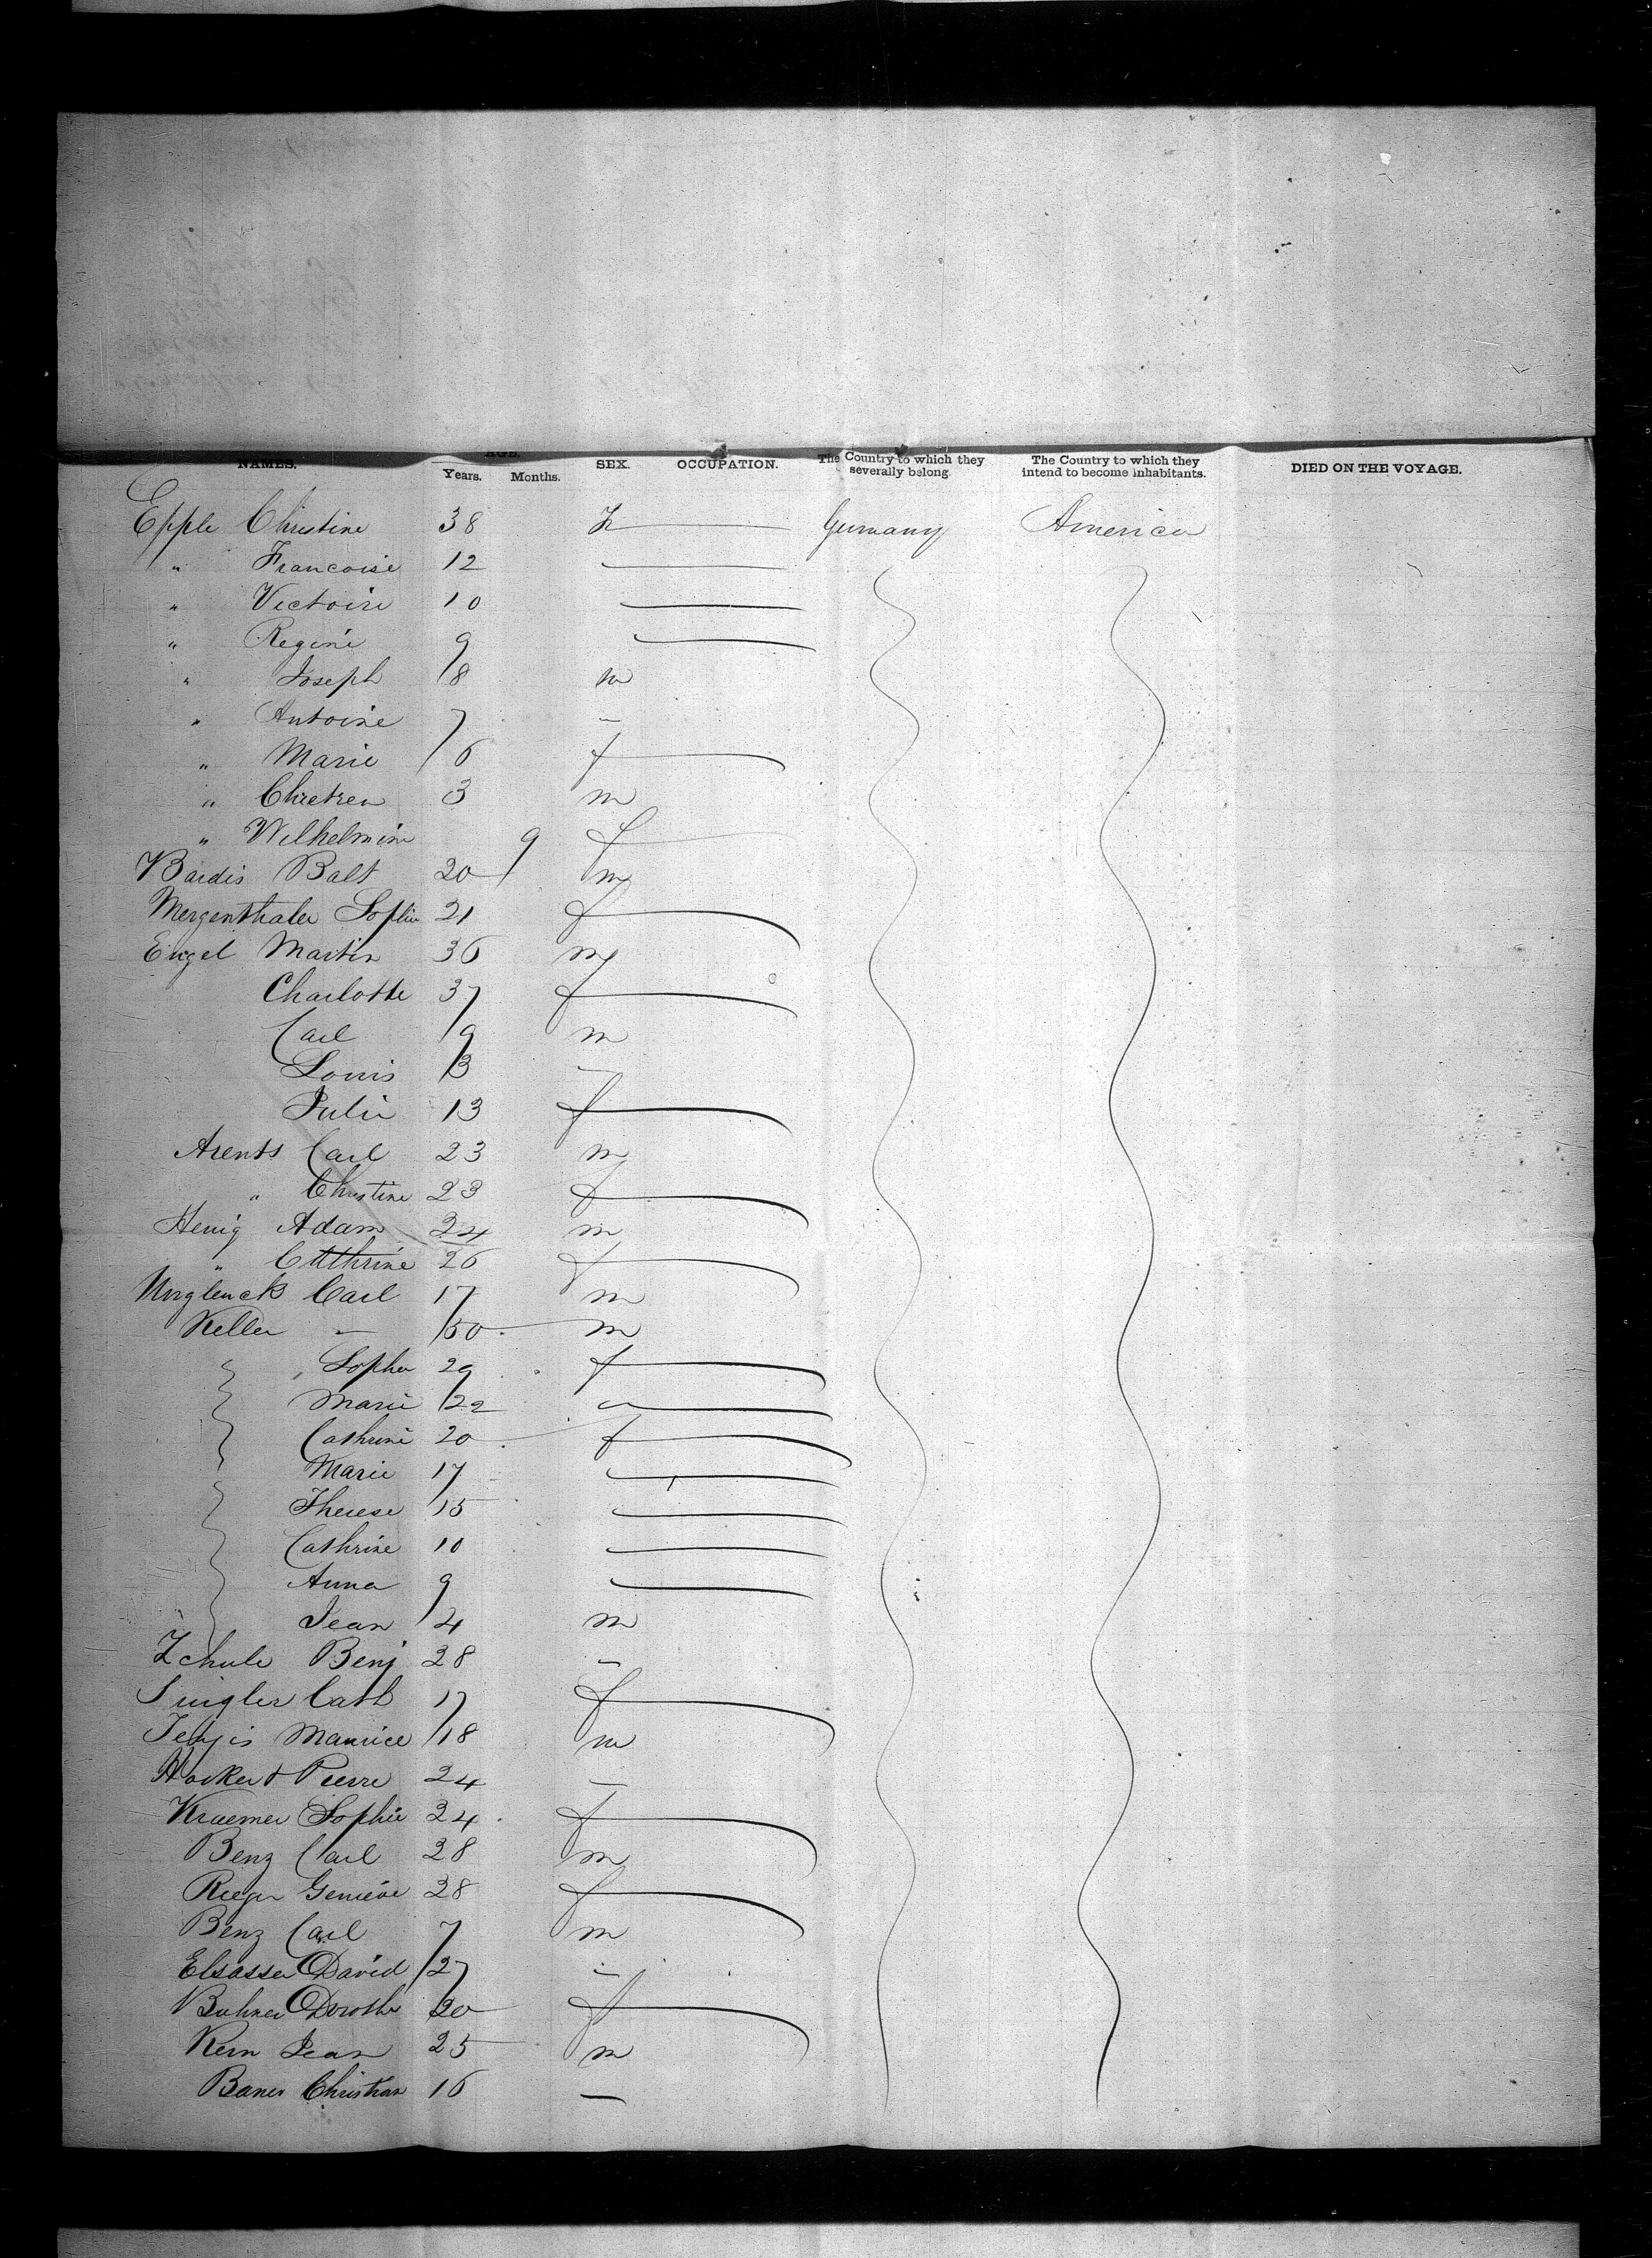 NAMES. AGE. Years. Months. SEX. OCCUPATION. The Country to which they severally belong. The Country to which they intend to become inhabitants. DIED ON THE VOYAGE.
Epple Christine 38 f Germany America
" Francoise 12
" Victoire 10
" Regine 9
" Joseph 8 m
" Antoine 7 –
" Marie 6 f
" Chretien 3 m
" Wilhelmine 9 f
Bardis Balt 20 m
Mergenthaler Sophie 21 f
Engel Martin 36 m
Charlotte 37 f
Carl 9 m
Louis 3 –
Julie 13 f
Arents Carl 23 m
" Christine 23 f
Henig Adam 24 m
" Cathrine 26 f
Carl 17 m
Keller – 50 m
Sophie 29 f
Marie 22
Cathrine 20 f
Marie 17
Therese 15
Cathrine 10
Anna 9
Jean 4 m
Zchule Benj 28 –
Cath 17 f
Maurice 18 m
Hockert Pierre 24 –
Kraemer Sophie 24 f
Benz Carl 28 m
Rieger Genieve 28 f
Benz Carl 7 m
Elsasser David 27 –
Buhner Dorothe 20 f
Kern Jean 25 m
Baner Christian 16 –